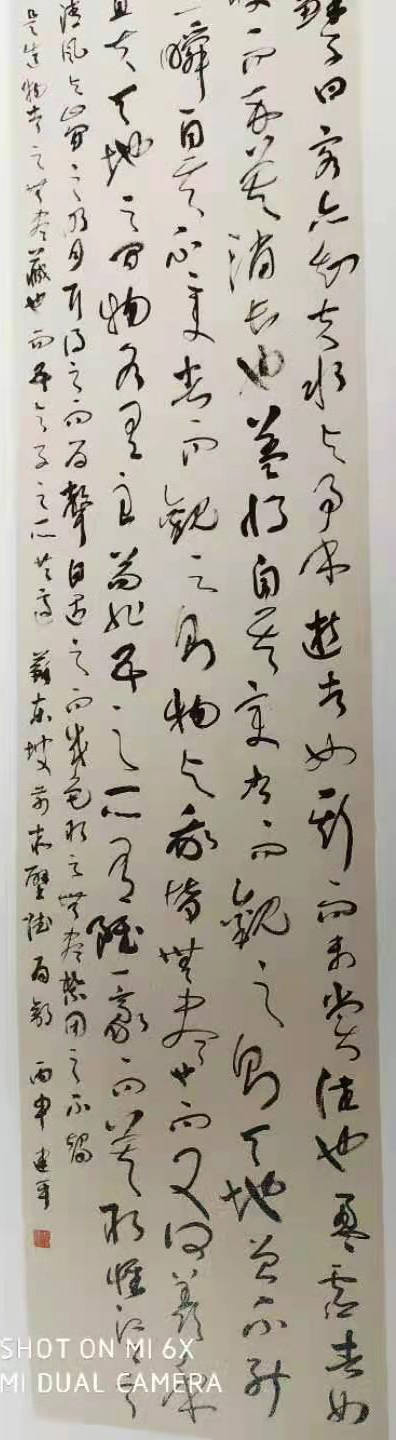 蘇子曰客亦知夫水与月乎逝者如斯而未嘗往也盈虛者如
彼而卒莫消長也蓋將自其變者而觀之則天地曾不能
一瞬自其不變者而觀之則物与我皆無盡也而又何羨乎
且夫天地之間物各有主苟非吾之所有雖一毫而莫取惟江上之
清風与山間之明月耳得之而為聲目遇之而成色取之無禁用之不竭
是造物者之無盡藏也而吾与子之所共適 蘇東坡前赤壁 丙申
SHOT ON MI 6X
MI DUAL CAMERA